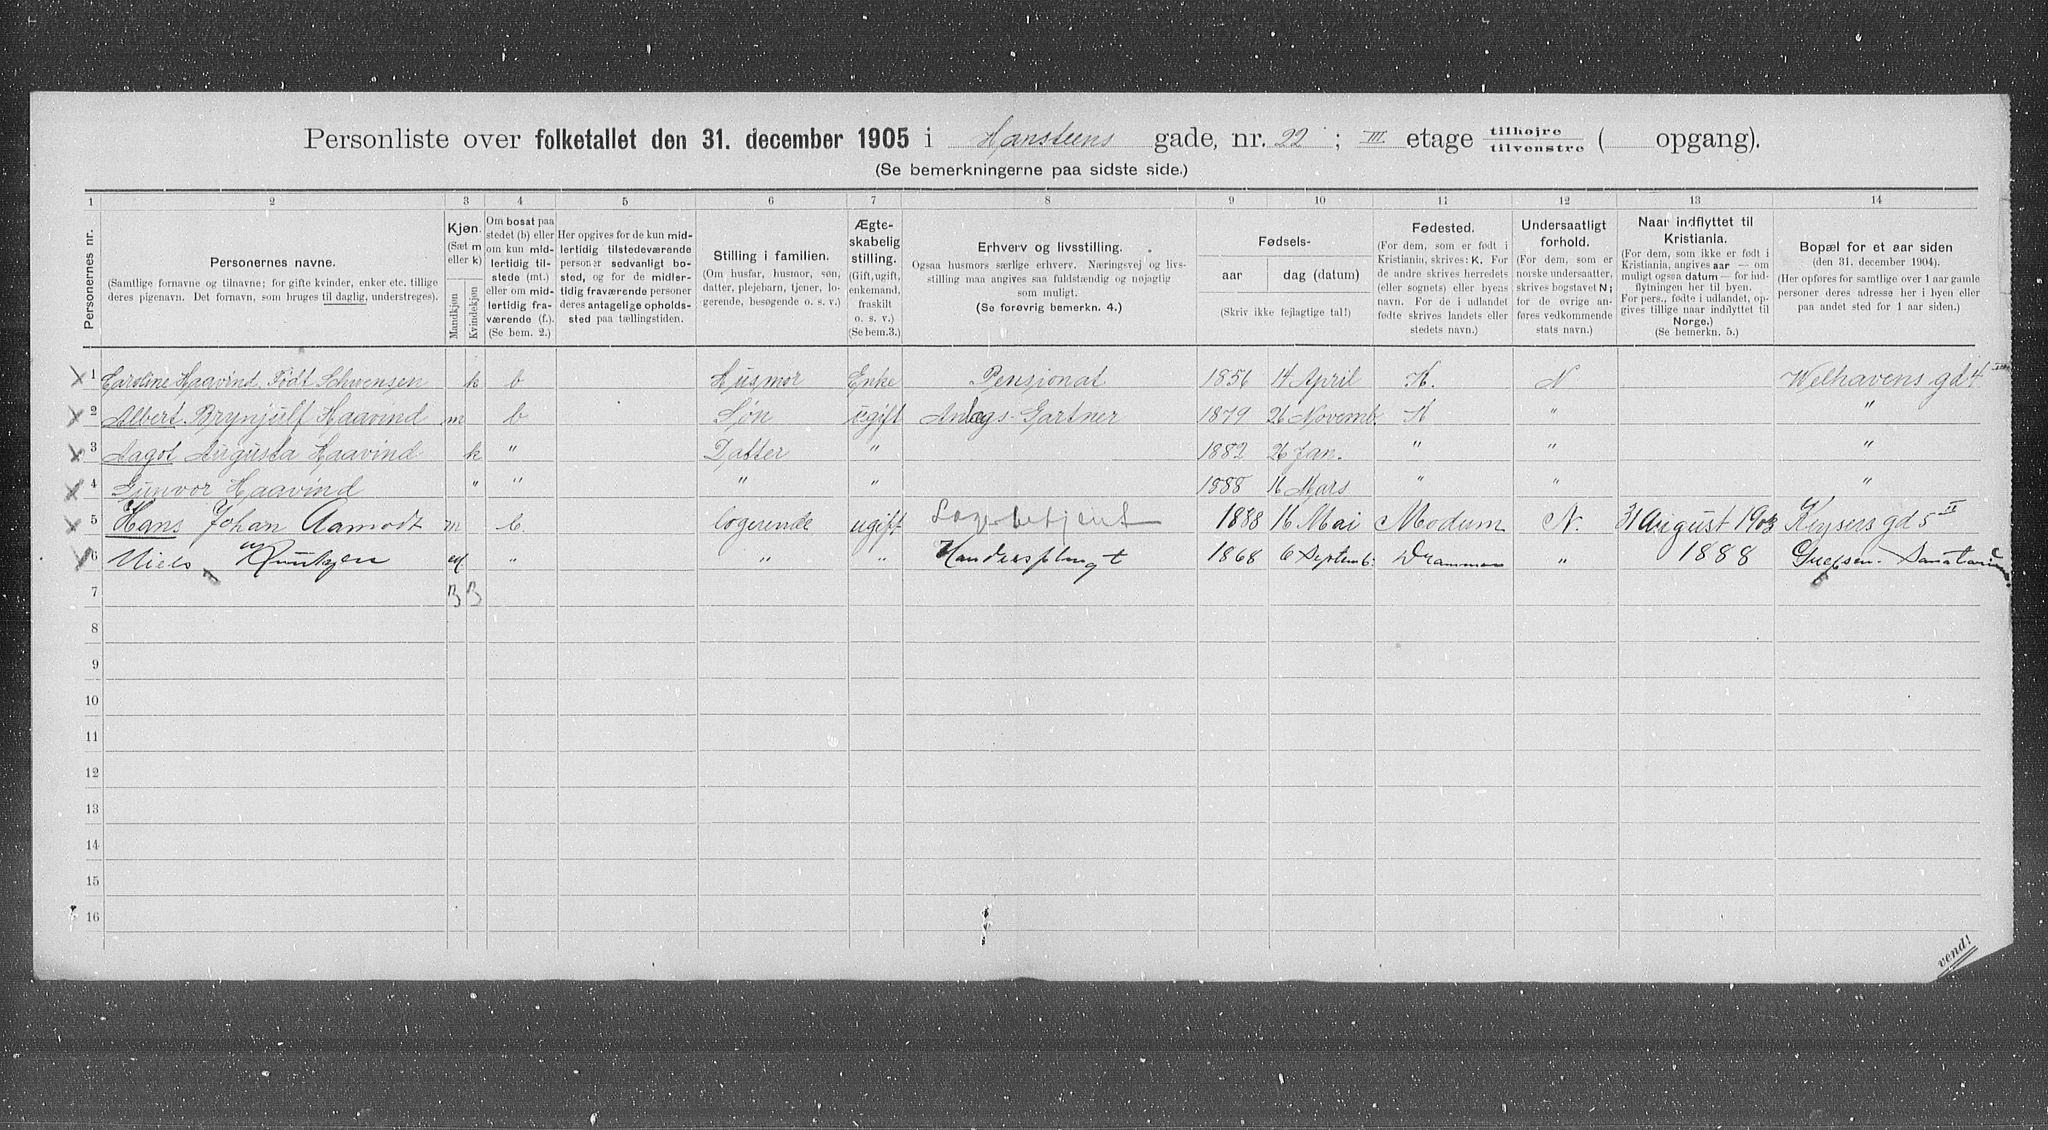 Personliste over folketallet den 31. december 1905 i Hansteens gade, nr. 22 ; III etage tilhøjre tilvenstre ( opgang).
(Se bemerkningerne paa sidste side.)
1 2 3 4 5 6 7 8 9 10 11 12 13 14
Personernes nr.
Personernes navne.
(Samtlige fornavne og tilnavne; for gifte kvinder, enker etc. tillige
deres pigenavn. Det fornavn, som bruges til daglig, understreges).
Kjøn.
(Sæt m
eller k)
Mandkjøn
Kvindekjøn
Om bosat paa
stedet (b) eller
om kun mid-
lertidig til-
stede (mt.)
eller om mid-
lertidig fra-
værende (f.).
(Se bem. 2.)
Her opgives for de kun mid-
lertidig tilstedeværende
personer sedvanligt bo-
sted, og for de midler-
tidig fraværende personer
deres antagelige opholds-
sted paa tællingstiden.
Stilling i familien.
(Om husfar, husmor, søn,
datter, plejebarn, tjener, lo-
gerende, besøgende o. s. v.)
Ægte-
skabelig
stilling.
(Gift, ugift,
enkemand,
fraskilt
o. s. v.)
(Se bem.3.)
Erhverv og livsstilling.
Ogsaa husmors særlige erhverv. Næringsvej og livs-
stilling maa angives saa fuldstændig og nøjagtig
som muligt.
(Se forøvrig bemerkn. 4.)
Fødsels-
aar dag (datum)
(Skriv ikke fejlagtige tal!)
Fødested.
(For dem, som er født i
Kristiania, skrives: K. For
de andre skrives herredets
(eller sognets) eller byens
navn. For de i udlandet
fødte skrives landets eller
stedets navn.)
Undersaatligt
forhold.
(For dem, som er
norske undersaatter,
skrives bogstavet N;
for de øvrige an-
føres vedkommende
stats navn.)
Naar indflyttet til
Kristiania.
(For dem, som ikke er født i
Kristiania, angives aar — om
muligt ogsaa datum — for ind-
flytningen her til byen.
For pers., fødte i udlandet, op-
gives tillige naar indflyttet til
Norge.)
(Se bemerkn. 5.)
Bopæl for et aar siden
(den 31. december 1904).
(Her opføres for samtlige over 1 aar gamle
personer deres adresse her i byen eller
paa andet sted for 1 aar siden.)
1 Caroline Haavind. Født Schwensen k b Husmor Enke Pensionat 1856 14 April K. N Welhavens gd 4
2 Albert Brynjulf Haavind m b Søn ugift Anlægs-Gartner 1879 26 Novemb. K " "
3 Aagot Augusta Haavind k " Datter " 1882 26 Jan. " " "
4 Gunvor Haavind " " " " 1888 16 Mars " " "
5 Hans Johan Aamodt m b. logerende ugift Lagerbetjent 1888 16 Mai Modum N. 31 August 1903 Keysers gd 5 II
6 Niels m " " " 1868 6 Septemb. Drammen " 1888 Grefsen. Sanatorium
7 B B
8
9
10
11
12
13
14
15
16
vend!